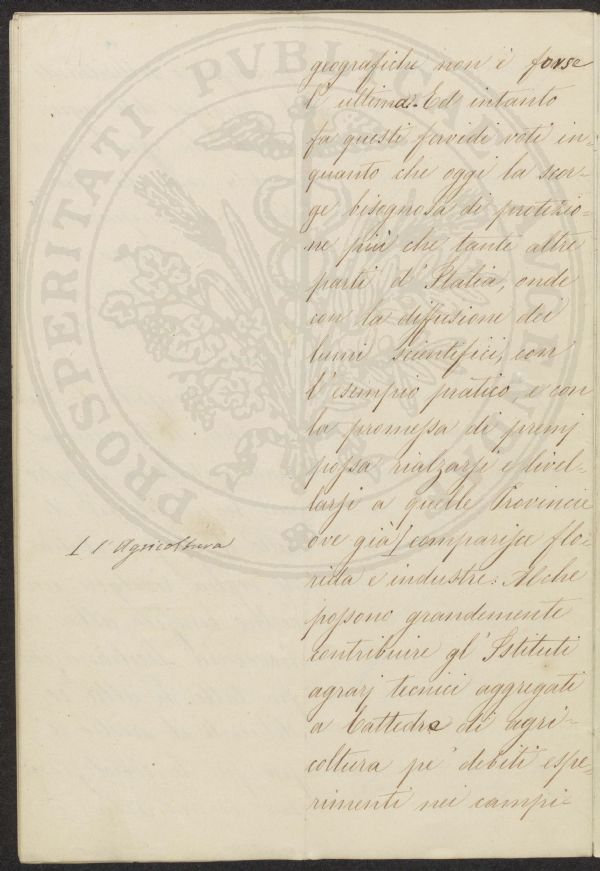 geografiche non è forse
l'ultima. Ed intanto
fa questi fervidi voti in-
quanto che oggi la scor-
ge bisognosa di protezio-
ne più che tante altre
parti d'Italia, onde
con la diffusione dei
lumi scientifici, con
l'esempio pratico, e con
la promessa di premj
possa rialzarsi e livel-
larsi a quelle Provincie
ove già [ comparisce flo-
[ l'Agricoltura
rida e industre: Al che
possono grandemente
contribuire gl'Istituti
agrarj tecnici aggregati
a Cattedre di agri-
coltura pe' debiti espe-
rimenti nei campi-
PROSPERITATI PVBLICAE